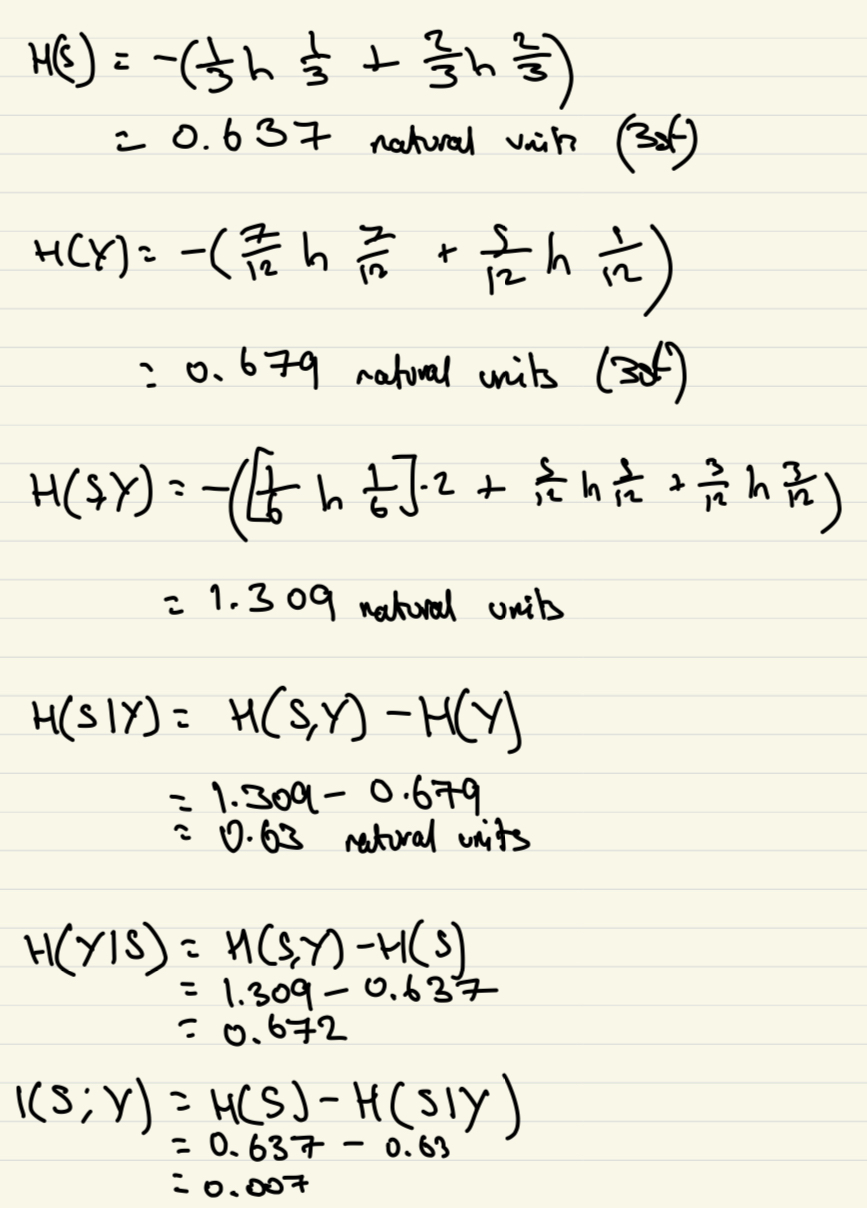 H(S) = -(1/3 ln 1/3 + 2/3 ln 2/3)
= 0.637 natural units (3sf)
H(Y) = -(7/12 ln 7/12 + 5/12 ln 5/12)
= 0.679 natural units (3sf)
H(S,Y) = -([1/6 ln 1/6]·2 + 5/12 ln 5/12 + 3/12 ln 3/12)
= 1.309 natural units
H(S|Y) = H(S,Y) - H(Y)
= 1.309 - 0.679
= 0.63 natural units
H(Y|S) = H(S,Y) - H(S)
= 1.309 - 0.637
= 0.672
I(S;Y) = H(S) - H(S|Y)
= 0.637 - 0.63
= 0.007